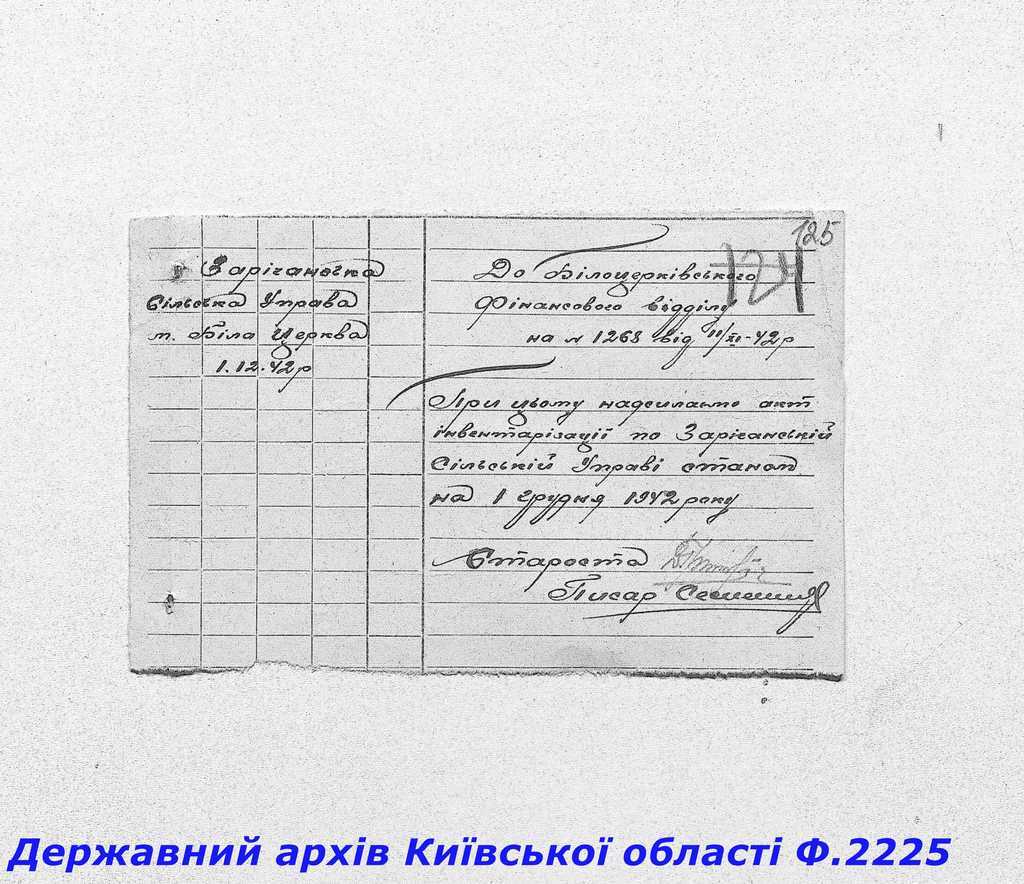 125
124
Зарічанська
Сільська Управа
м. Біла Церква
1.12.42р
До Білоцерківського
Фінансового відділу
на № 1268 від 11/XI-42р
При цьому надсилаємо акт
інвентарізації по Зарічанській
Сільській Управі станом
на 1 грудня 1942 року
Староста
Писар
Державний архів Київської області Ф.2225